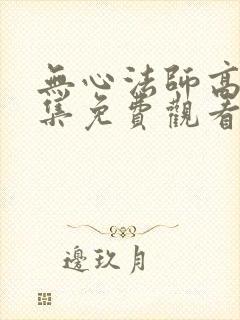 無心法師高
集免費觀看
邊玖月